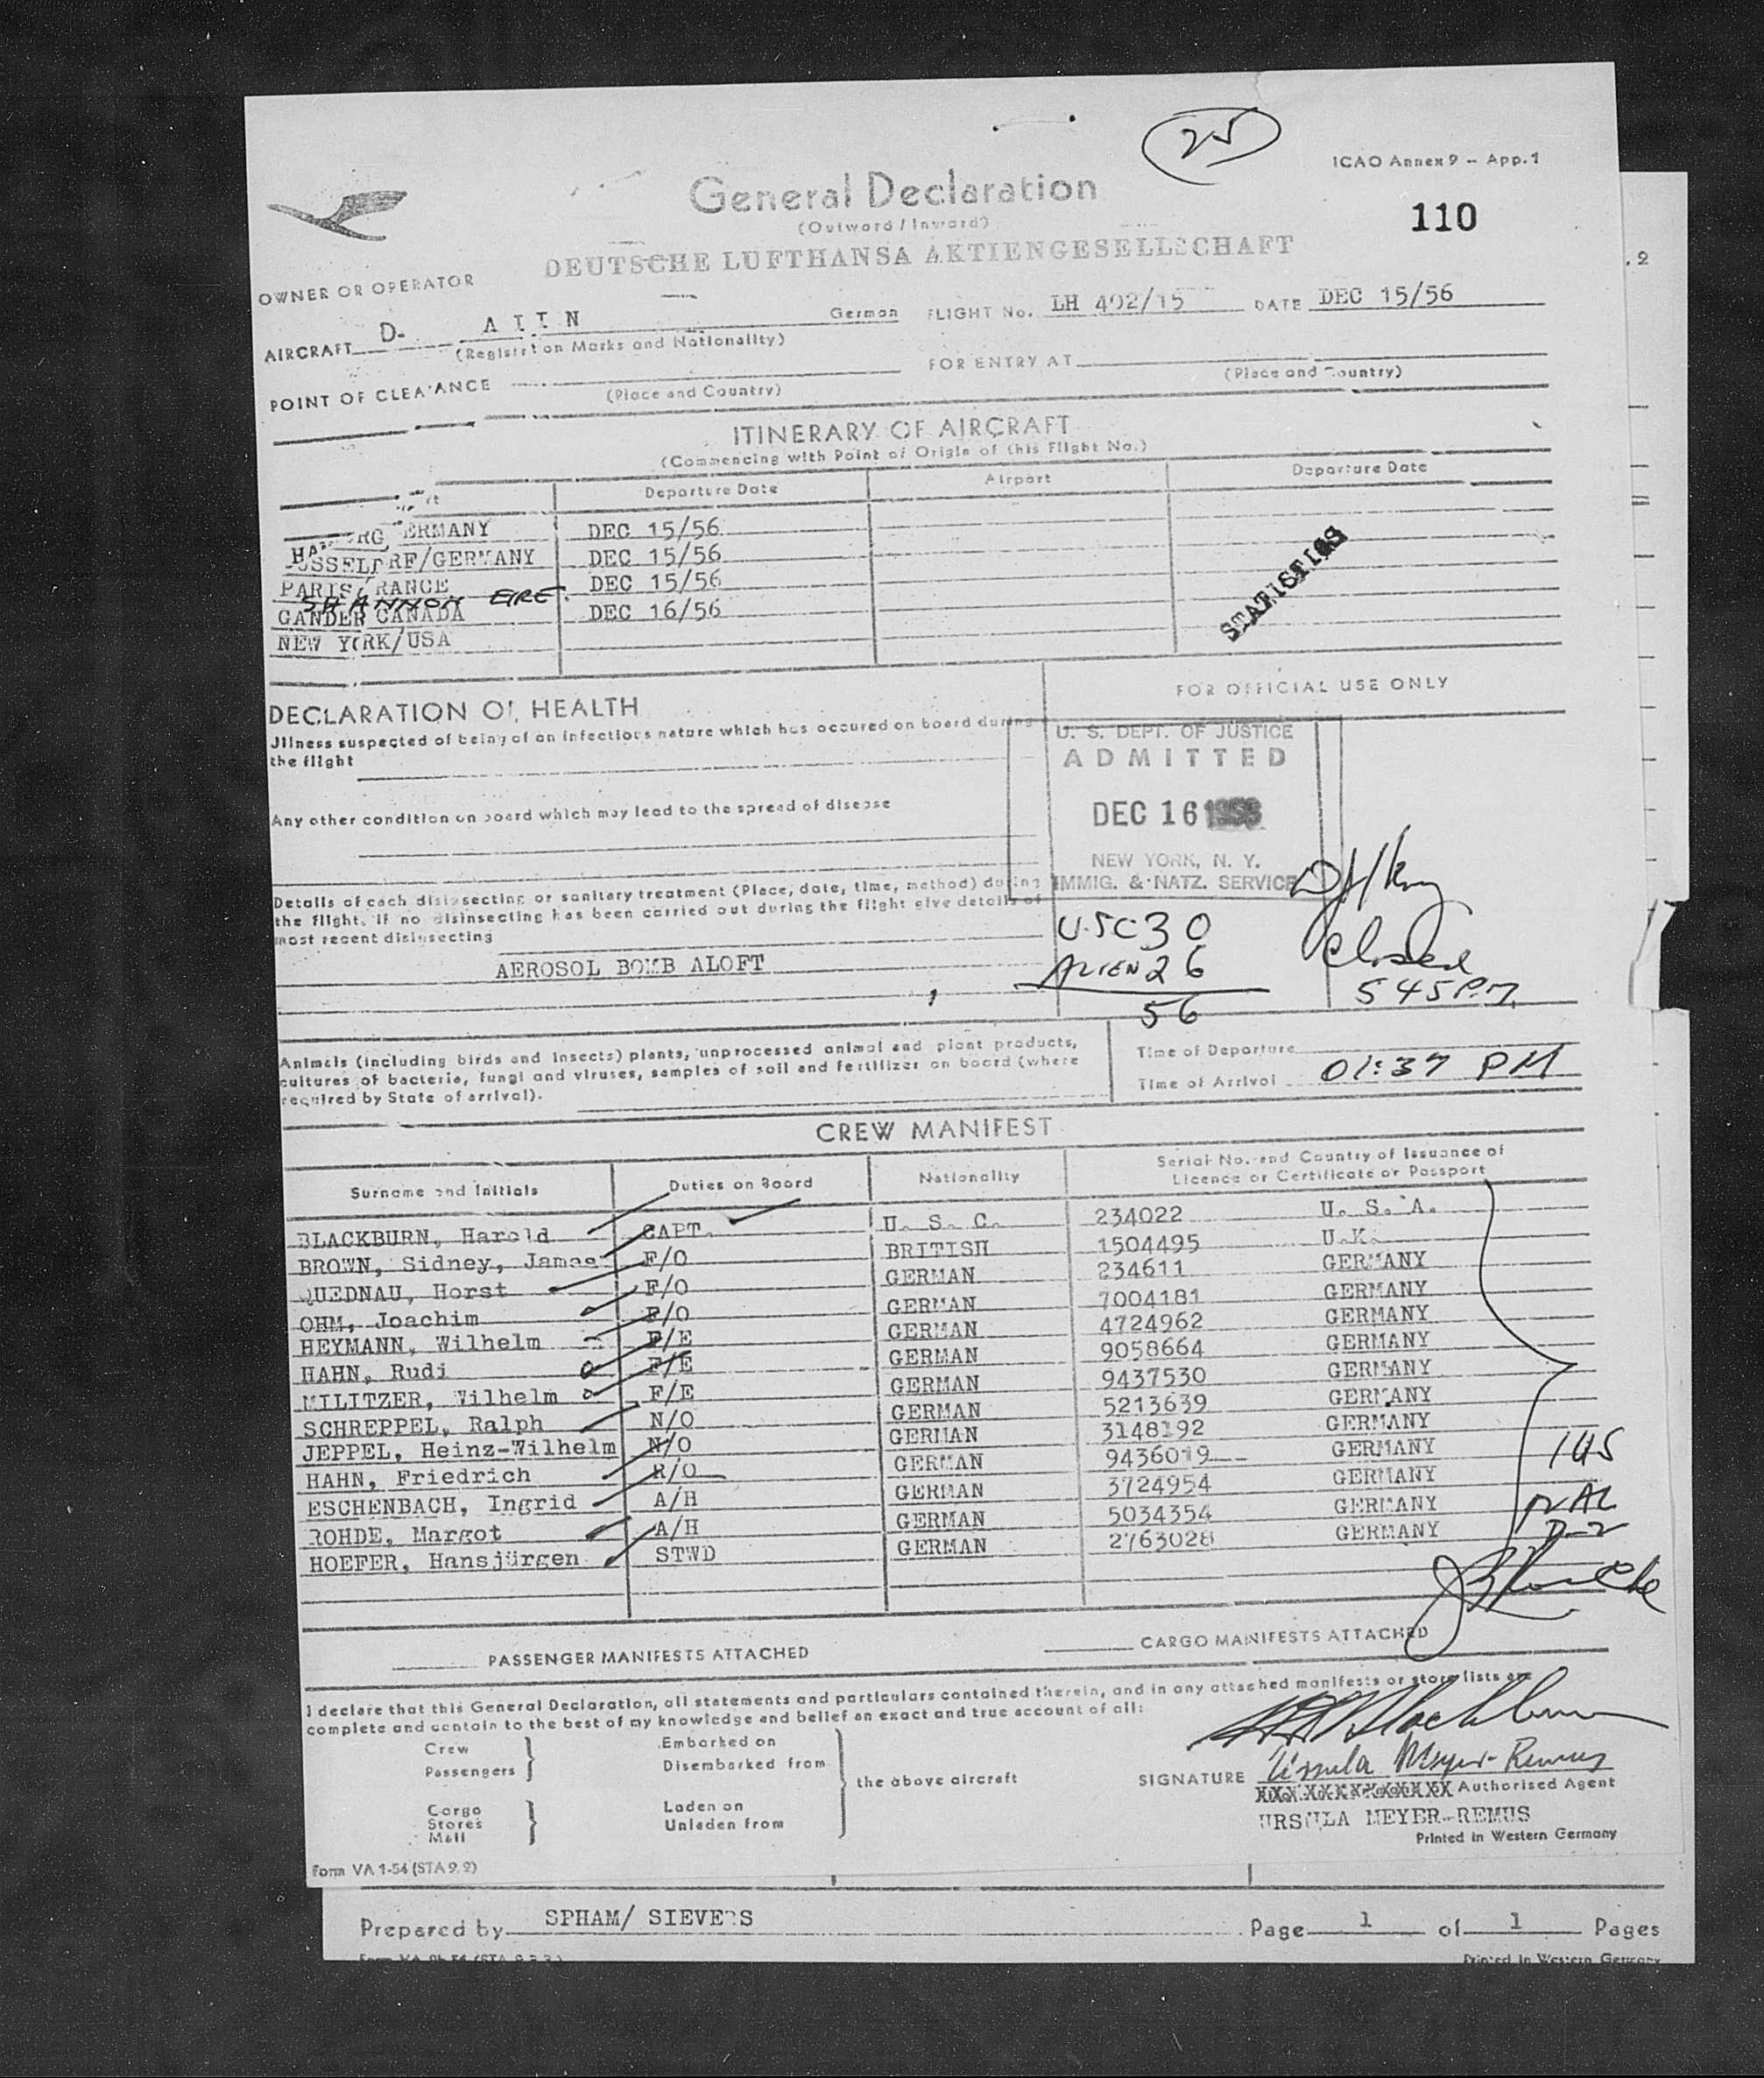 25
ICAO Annex 9 -- App. 1
General Declaration
(Outward / Inward)
110
DEUTSCHE LUFTHANSA AKTIENGESELLSCHAFT
OWNER OR OPERATOR
AIRCRAFT D- German FLIGHT No. LH 402/15 DATE DEC 15/56
(Registration Marks and Nationality)
FOR ENTRY AT
(Place and Country)
POINT OF CLEARANCE
(Place and Country)
ITINERARY OF AIRCRAFT
(Commencing with Point of Origin of this Flight No.)
Departure Date Airport Departure Date
HAMBURG GERMANY DEC 15/56
DUSSELDORF/GERMANY DEC 15/56
PARIS/FRANCE DEC 15/56
SHANNON EIRE
GANDER CANADA DEC 16/56
NEW YORK/USA
STATISTICS
FOR OFFICIAL USE ONLY
DECLARATION OF HEALTH
Jllness suspected of being of an infectious nature which has occured on board during
the flight
Any other condition on board which may lead to the spread of disease
Details of each disinsecting or sanitary treatment (Place, date, time, method) during
the flight. If no disinsecting has been carried out during the flight give details of
most recent disinsecting
AEROSOL BOMB ALOFT
U. S. DEPT. OF JUSTICE
ADMITTED
DEC 16
NEW YORK, N. Y.
IMMIG. & NATZ. SERVICE
USC 30
ALIEN 26
56
Closed
545 P.M.
Animals (including birds and insects) plants, unprocessed animal and plant products,
cultures of bacteria, fungi and viruses, samples of soil and fertilizer on board (where
required by State of arrival).
Time of Departure
Time of Arrival 01:37 PM
CREW MANIFEST
Surname and Initials Duties on Board Nationality Serial No. and Country of Issuance of
Licence or Certificate or Passport
BLACKBURN, Harold CAPT. U. S. C. 234022 U. S. A.
BROWN, Sidney, James F/O BRITISH 1504495 U.K.
QUEDNAU, Horst F/O GERMAN 234611 GERMANY
OHM, Joachim F/O GERMAN 7004181 GERMANY
HEYMANN, Wilhelm F/E GERMAN 4724962 GERMANY
HAHN, Rudi F/E GERMAN 9058664 GERMANY
MILITZER, Wilhelm F/E GERMAN 9437530 GERMANY
SCHREPPEL, Ralph N/O GERMAN 5213639 GERMANY
JEPPEL, Heinz-Wilhelm N/O GERMAN 3148192 GERMANY
HAHN, Friedrich R/O GERMAN 9436019 GERMANY
ESCHENBACH, Ingrid A/H GERMAN 3724954 GERMANY
ROHDE, Margot A/H GERMAN 5034354 GERMANY
HOEFER, Hansjürgen STWD GERMAN 2763028 GERMANY
D-2
PASSENGER MANIFESTS ATTACHED CARGO MANIFESTS ATTACHED
I declare that this General Declaration, all statements and particulars contained therein, and in any attached manifests or store lists are
complete and contain to the best of my knowledge and belief an exact and true account of all:
Crew
Passengers
Embarked on
Disembarked from
the above aircraft
Cargo
Stores
Mail
Laden on
Unladen from
SIGNATURE Ursula Meyer-Remus
Authorised Agent
URSULA MEYER-REMUS
Printed in Western Germany
Form VA 1-54 (STA 9.2)
Prepared by SPHAM/ SIEVERS Page 1 of 1 Pages
Printed in Western Germany